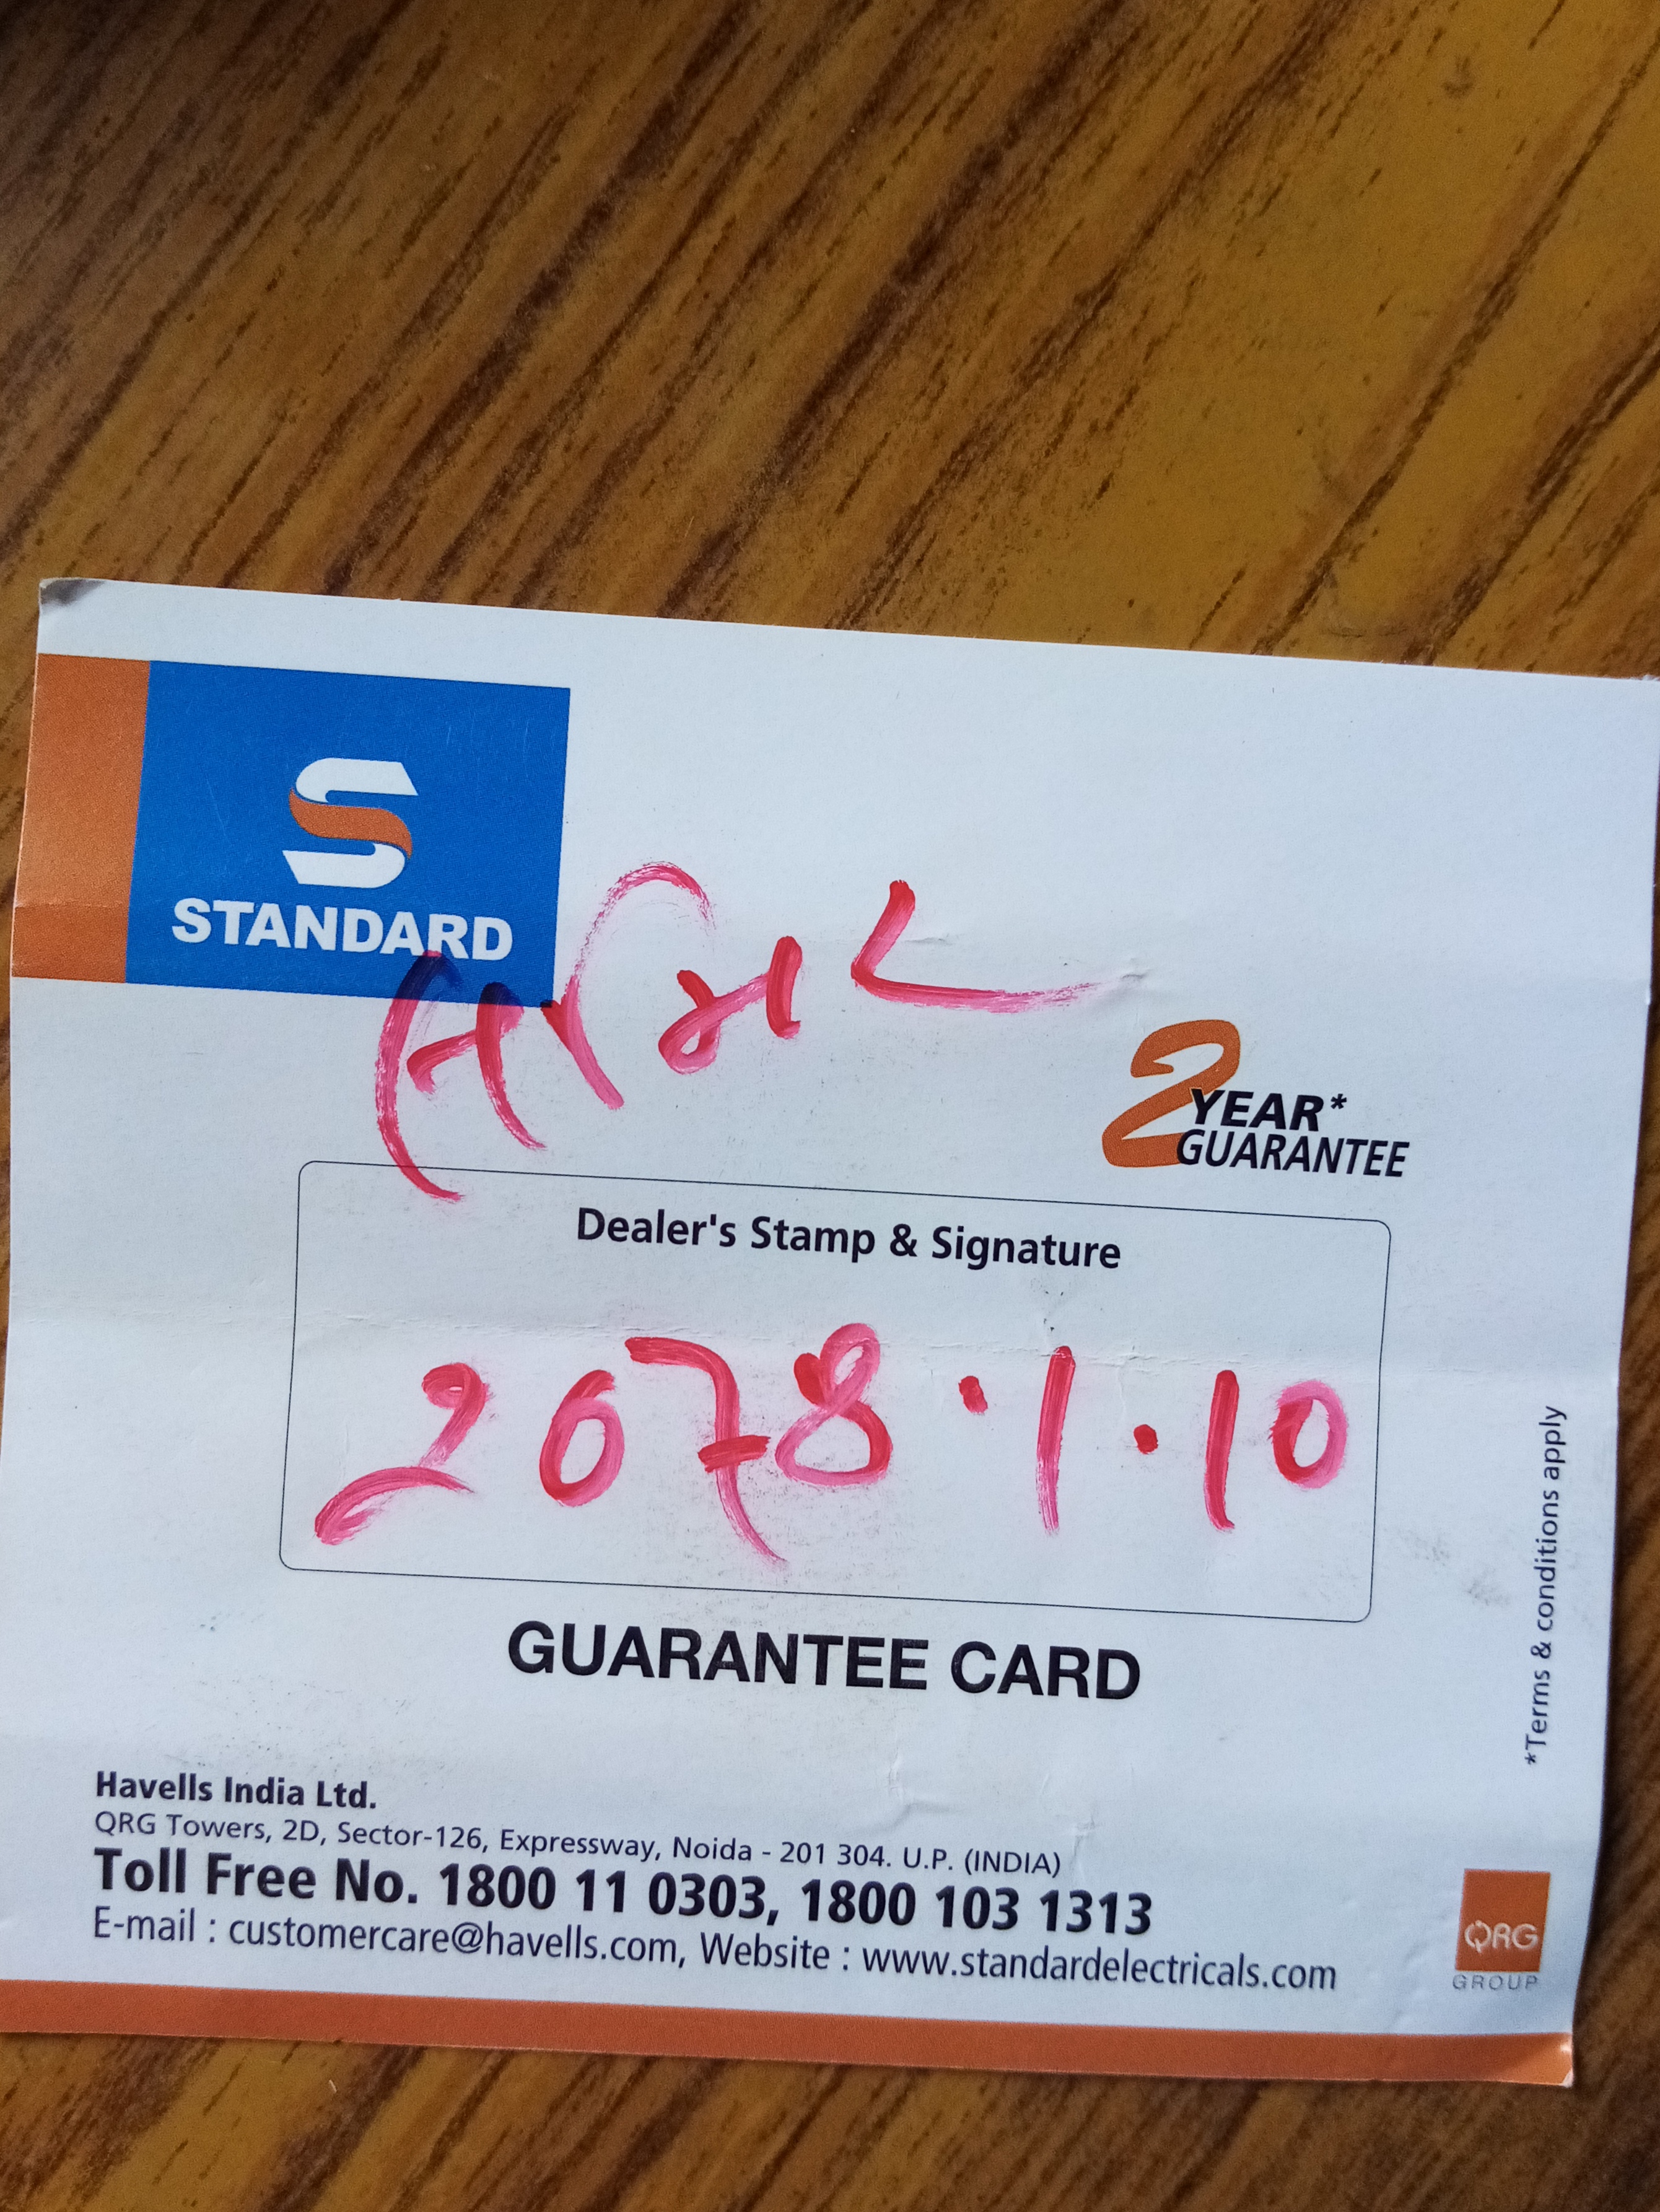 S
STANDARD
2 YEAR*
GUARANTEE
Dealer's Stamp & Signature
2078.1.10
GUARANTEE CARD
*Terms & conditions apply
Havells India Ltd.
QRG Towers, 2D, Sector-126, Expressway, Noida - 201 304. U.P. (INDIA)
Toll Free No. 1800 11 0303, 1800 103 1313
E-mail : customercare@havells.com, Website : www.standardelectricals.com
QRG
GROUP